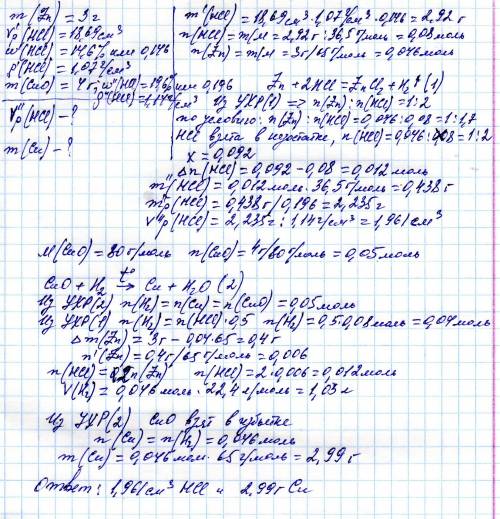 m(Zn) = 3г
Vр(HCl) = 18,69см³
w'(HCl) = 14,6% или 0,146
ρ'(HCl) = 1,07г/см³
m(CuO) = 4г; w''(HCl) = 19,6% или 0,196
ρ''(HCl) = 1,14г/см³
V''р(HCl) - ?
m(Cu) - ?
m'(HCl) = 18,69см³·1,07г/см³·0,146 = 2,92г
n(HCl) = m/M = 2,92г : 36,5г/моль = 0,08моль
n(Zn) = m/M = 3г/65г/моль = 0,046моль
Zn + 2HCl = ZnCl₂ + H₂↑ (1)
Из УХР(1) => n(Zn) : n(HCl) = 1:2
по условию: n(Zn) : n(HCl) = 0,046:0,08 = 1:1,7
HCl взята в недостатке, n(HCl) = 0,046: х = 1:2
x = 0,092
Δn(HCl) = 0,092 - 0,08 = 0,012моль
m''(HCl) = 0,012моль·36,5г/моль = 0,438г
m''р(HCl) = 0,438г/0,196 = 2,235г
V''р(HCl) = 2,235г : 1,14г/см³ = 1,961см³
M(CuO) = 80г/моль n(CuO) = 4г/80г/моль = 0,05моль
CuO + H₂ t°→ Cu + H₂O (2)
Из УХР(2) n(H₂) = n(Cu) = n(CuO) = 0,05моль
Из УХР(1) n(H₂) = n(HCl)·0,5 n(H₂) = 0,5·0,08моль = 0,04моль
Δm(Zn) = 3г - 0,04·65 = 0,4г
n'(Zn) = 0,4г/65г/моль = 0,006
n(HCl) = 2n(Zn) n(HCl) = 2·0,006 = 0,012моль
V(H₂) = 0,046моль·22,4л/моль = 1,03л
Из УХР(2) CuO взят в избытке
n(Cu) = n(H₂) = 0,046моль
m(Cu) = 0,046моль·65г/моль = 2,99г
Ответ: 1,961см³ HCl и 2,99г Cu